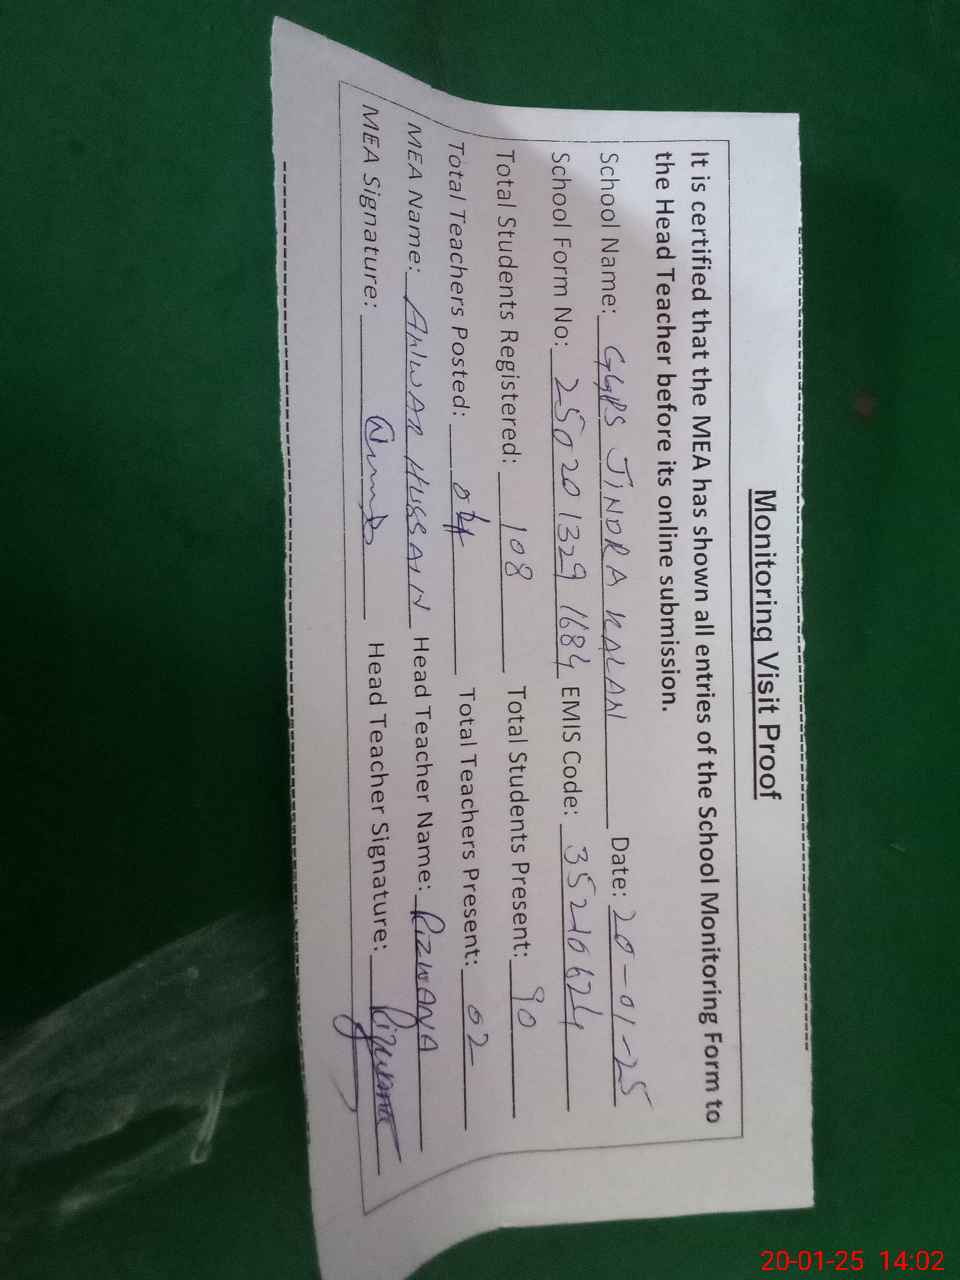 Monitoring Visit Proof
It is certified that the MEA has shown all entries of the School Monitoring Form to
the Head Teacher before its online submission.
School Name: GGPS JINDRA KALAN Date: 20-01-25
School Form No: 250201329 1684 EMIS Code: 35210624
Total Students Registered: 108 Total Students Present: 90
Total Teachers Posted: 04 Total Teachers Present: 02
MEA Name: ANWAR HUSSAIN Head Teacher Name: RIZWANA
MEA Signature: Head Teacher Signature: Rizwana
20-01-25 14:02